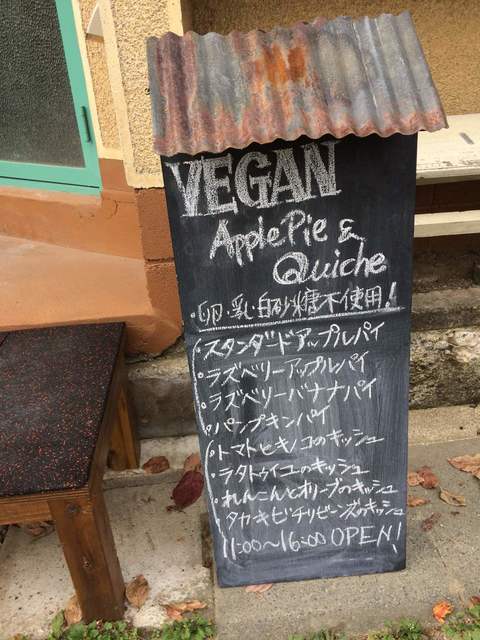 VEGAN
Apple Pie &
Quiche
・卵・乳・白砂糖不使用!
・スタンダードアップルパイ
・ラズベリーアップルパイ
・ラズベリーバナナパイ
・パンプキンパイ
・トマトとキノコのキッシュ
・ラタトゥイユのキッシュ
・れんこんとオリーブのキッシュ
タカキビチリビーンズのキッシュ
11:00~16:00 OPEN!